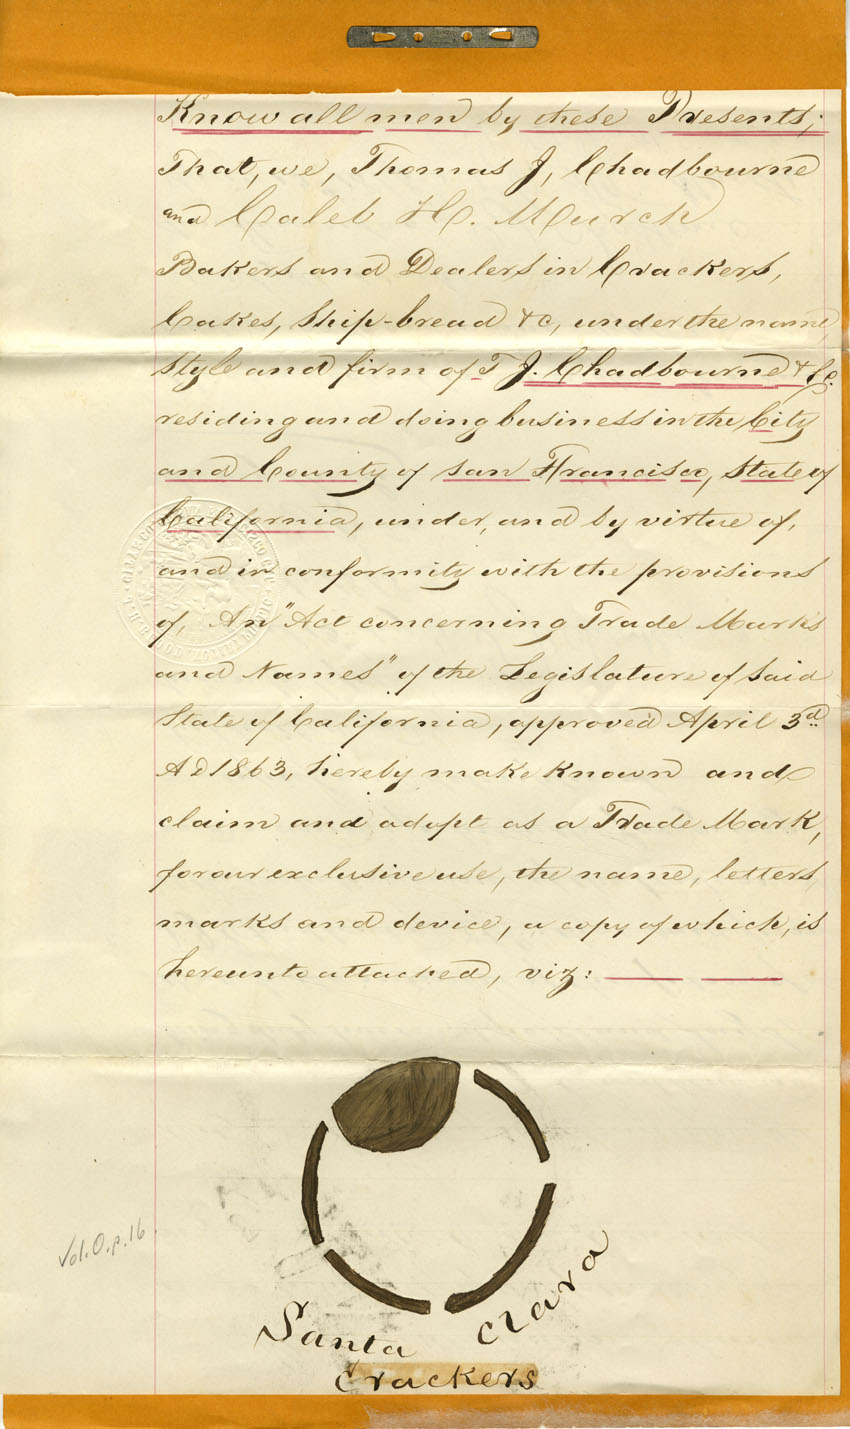 Know all men by these Presents;
That, we, Thomas J, Chadbourne
and Caleb H. Murch
Bakers and Dealers in Crackers,
Cakes, Ship-bread &c, under the name,
style and firm of T J. Chadbourne & Co.
residing and doing business in the City
and County of San Francisco, State of
California, under, and by virtue of,
and in conformity with the provisions
of, An "Act concerning Trade Marks
and Names" of the Legislature of said
State of California, approved April 3d
AD 1863, hereby make known and
claim and adopt as a Trade Mark,
for our exclusive use, the name, letters,
marks and device, a copy of which, is
hereunto attached, viz:
Vol. O. p. 16
Santa Clara
Crackers